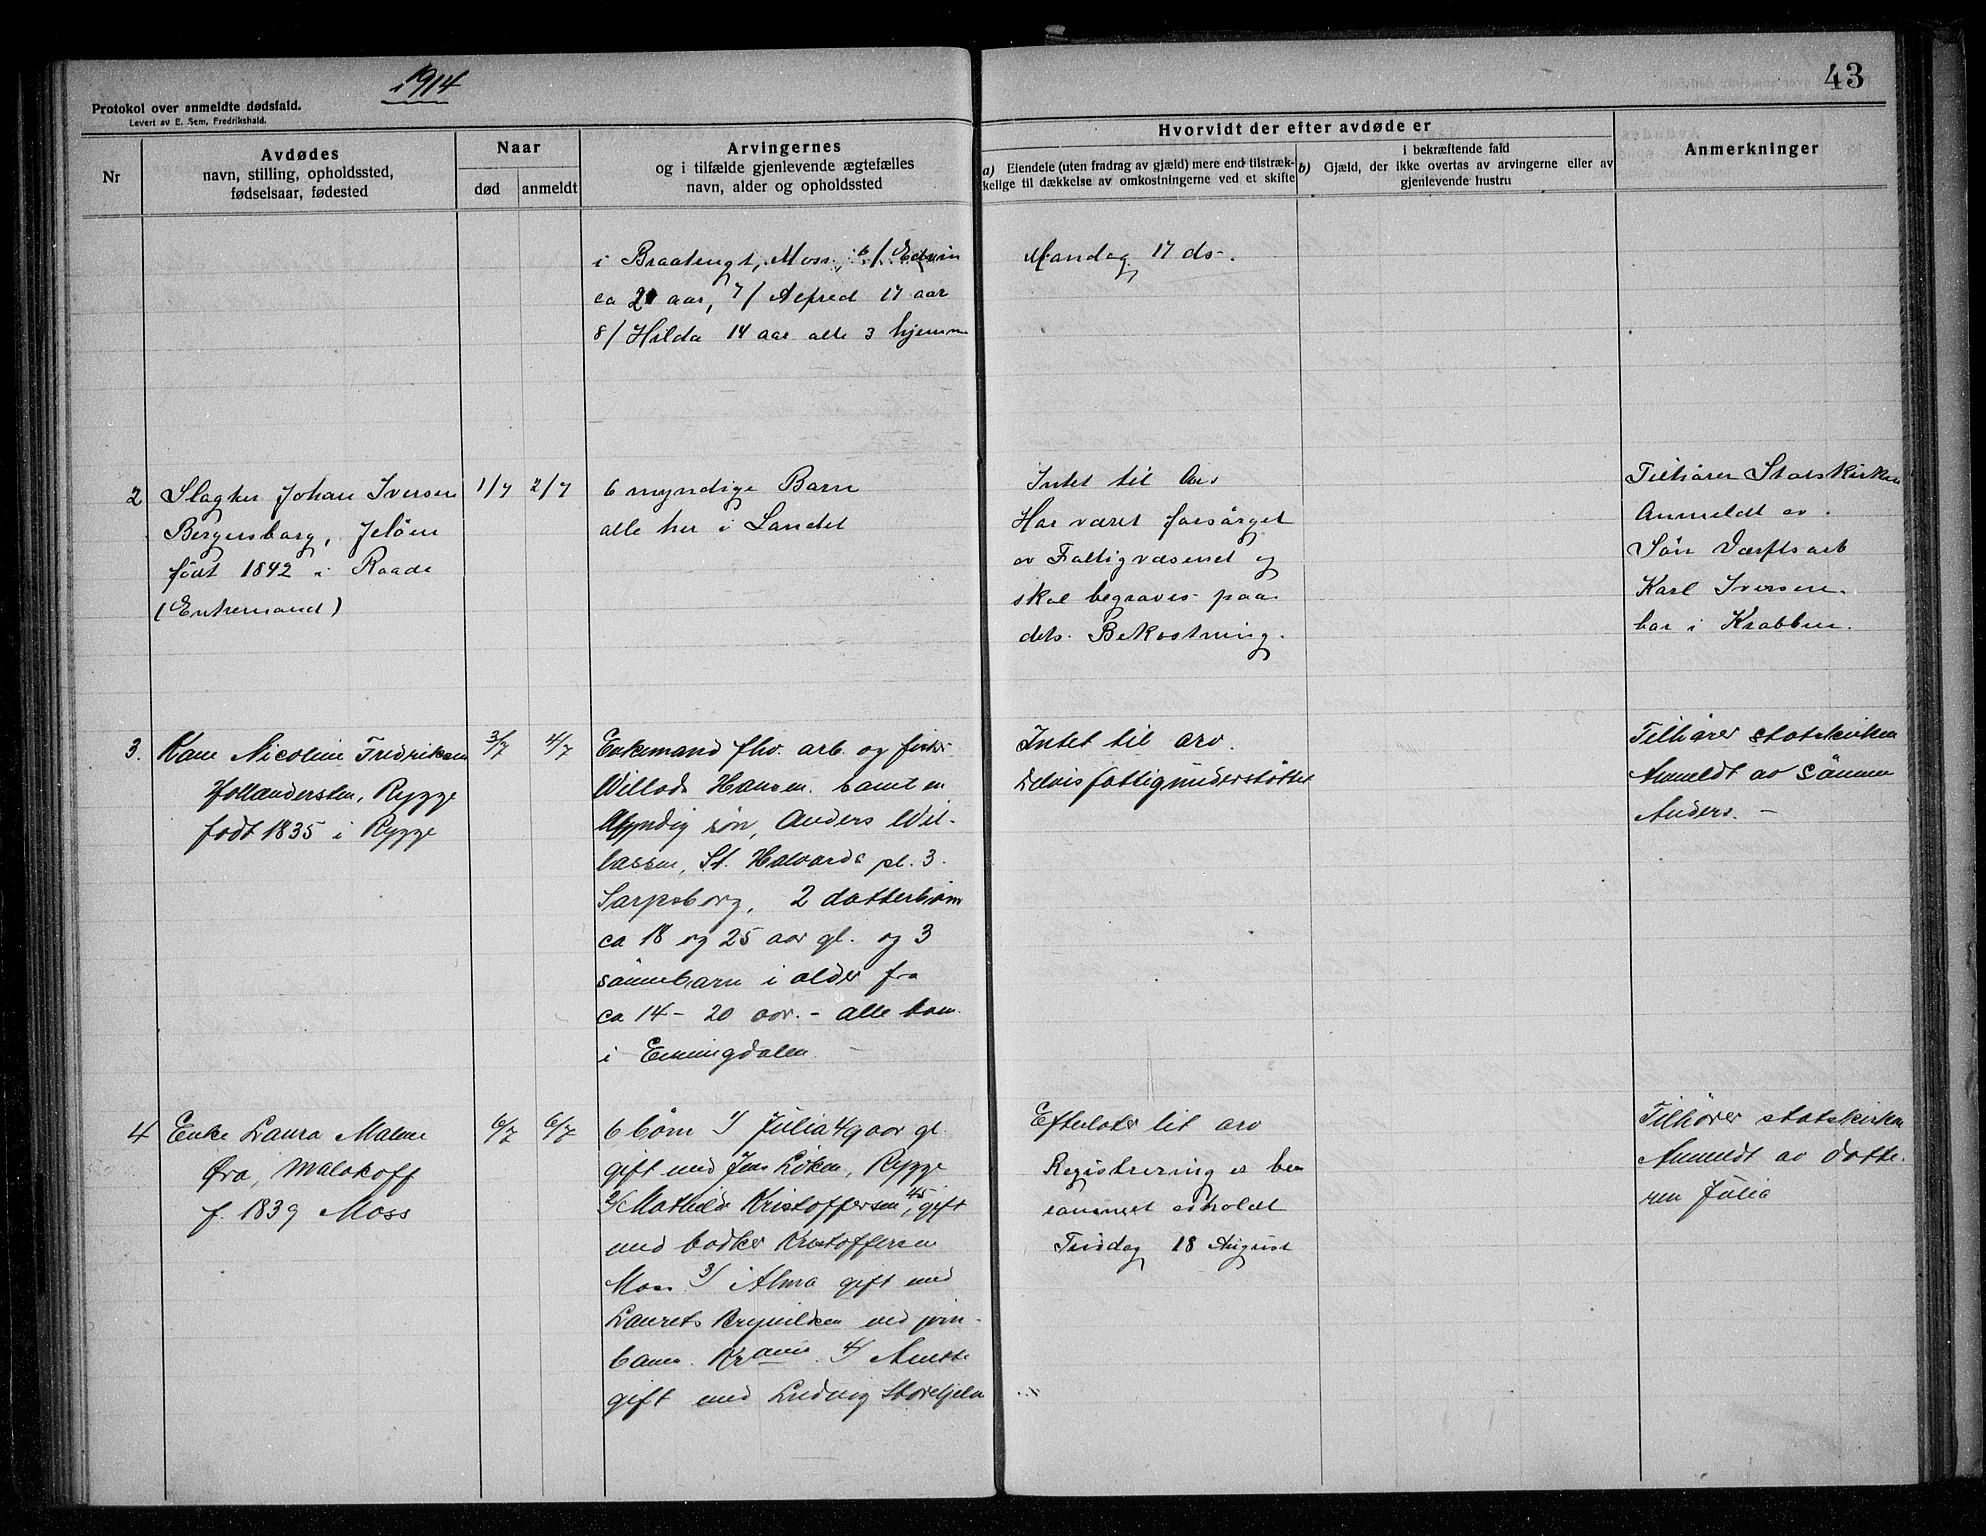 1914
43
Protokol over anmeldte dødsfald.
Levert av E. Sem, Fredrikshald.
Nr
Avdødes
navn, stilling, opholdssted,
fødselsaar, fødested
Naar
død
anmeldt
Arvingernes
og i tilfælde gjenlevende ægtefælles
navn, alder og opholdssted
Hvorvidt der efter avdøde er
a) Eiendele (uten fradrag av gjæld) mere end tilstræk-
kelige til dækkelse av omkostningerne ved et skifte
i bekræftende fald
b) Gjæld, der ikke overtas av arvingerne eller av
gjenlevende hustru
Anmerkninger
i Braatengt, Moss, 6/ Edvin
ca 20 aar, 7/ Alfred 17 aar
8/ Hilda 14 aar alle 3 hjemme
Mandag 17 ds.
2
Slagter Johan Iversen
Bergersborg, Jeløen
født 1842 i Raade
(Enkemand)
1/7
2/7
6 myndige Barn
alle her i Landet
Intet til Arv
Har været forsørget
av Fattigvæsenet og
skal begraves paa
dets Bekostning.
Tilhører Statskirken
Anmeldt av
Søn Værftsarb
Karl Iversen
bor i Krabben.
3.
Kone Nicoline Fredriksen
Hollendersten, Rygge
født 1835 i Rygge
3/7
4/7
Enkemand fhv. arb. og fisker
Willads Hansen samt en
Myndig søn, Anders Wil-
lassen, St. Halvards pl. 3.
Sarpsborg, 2 datterbørn
ca 18 og 25 aar gl. og 3
sønnebarn i alder fra
ca 14 - 20 aar. - alle barn
i Enningdalen
Intet til arv.
Delvis fattigunderstøttet
Tilhører statskirken
Anmeldt av sønnen
Anders. -
4
Enke Laura Malme
Øra, Malakoff
f. 1839 Moss
6/7
6/7
6 børn 1/ Julia 49 aar gl
gift med Jens Løken, Rygge
2/ Mathilde Kristoffersen, 45, gift
med bødker Kristoffersen
Moss 3/ Alma gift med
Laurets Brynildsen ved jern-
banen. Kr.ania. 4/ Anette
gift med Ludvig Storeljeln
Efterlater til arv
Registrering er be
rammet avholdt
Tirsdag 18 August
Tilhører statskirken
Anmeldt av datte-
ren Julia